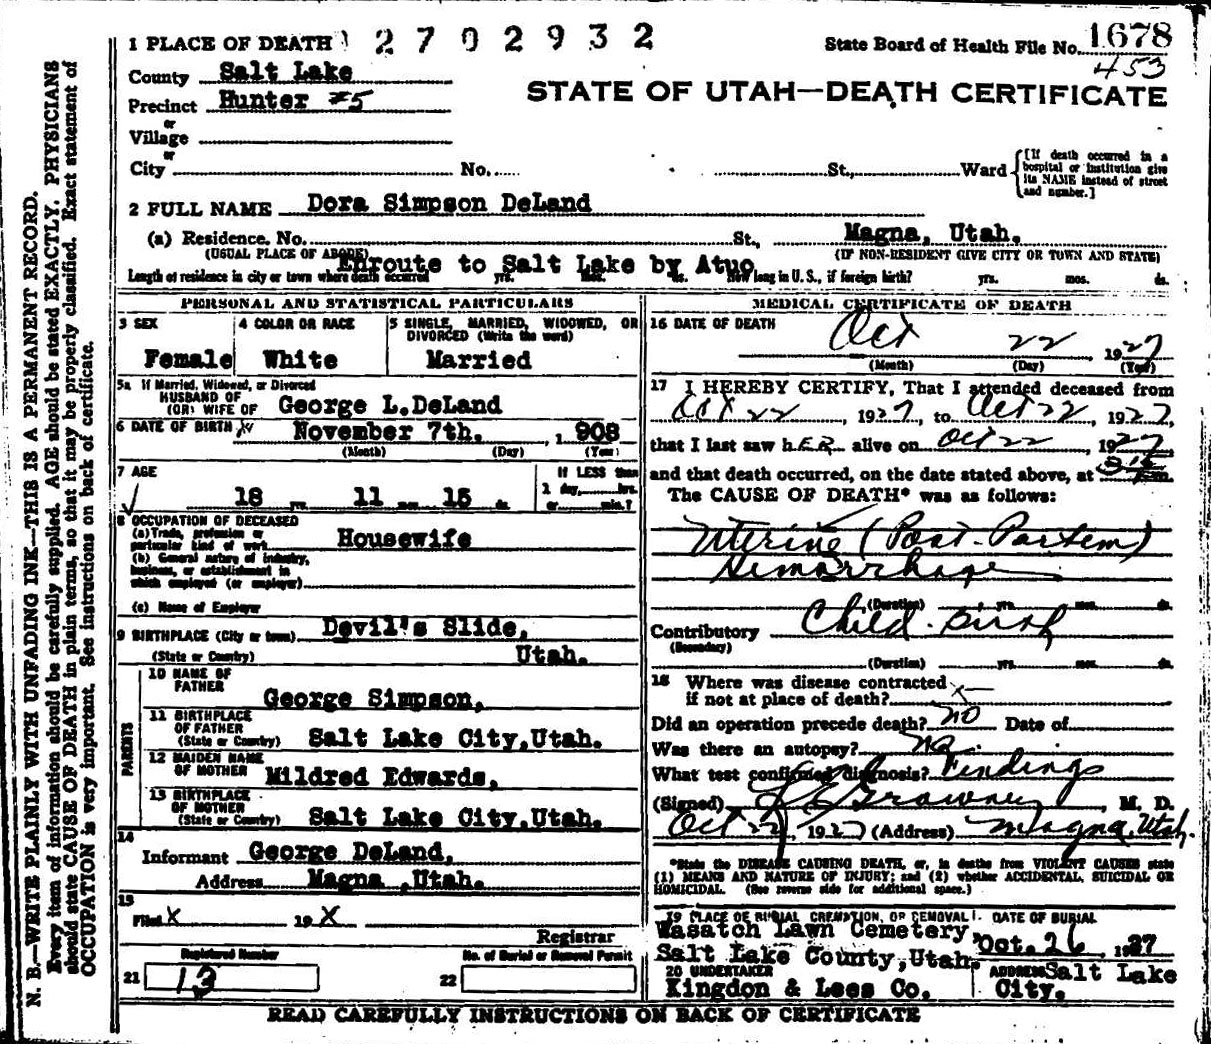 1 PLACE OF DEATH 2702932 State Board of Health File No. 1678
453
County Salt Lake
Precinct Hunter #5
STATE OF UTAH—DEATH CERTIFICATE
or
Village
or
City No. St., Ward
[If death occurred in a hospital or institution give its NAME instead of street and number.]
2 FULL NAME Dora Simpson DeLand
(a) Residence, No. St., Magna, Utah.
(USUAL PLACE OF ABODE) (IF NON-RESIDENT GIVE CITY OR TOWN AND STATE)
Enroute to Salt Lake by Atuo
Length of residence in city or town where death occurred yrs. mos. ds. How long in U. S., if foreign birth? yrs. mos. ds.
PERSONAL AND STATISTICAL PARTICULARS
3 SEX 4 COLOR OR RACE 5 SINGLE, MARRIED, WIDOWED, OR DIVORCED (Write the word)
Female White Married
5a If Married, Widowed, or Divorced
HUSBAND OF
(OR) WIFE OF George L.DeLand
6 DATE OF BIRTH November 7th. , 1 908
(Month) (Day) (Year)
7 AGE If LESS than
18 yrs. 11 mos. 15 ds. 1 day, hrs.
or min.?
8 OCCUPATION OF DECEASED
(a) Trade, profession or
particular kind of work Housewife
(b) General nature of industry,
business, or establishment in
which employed (or employer)
(c) Name of Employer
9 BIRTHPLACE (City or town) Devil's Slide,
(State or Country) Utah.
PARENTS
10 NAME OF
FATHER George Simpson,
11 BIRTHPLACE
OF FATHER
(State or Country) Salt Lake City,Utah.
12 MAIDEN NAME
OF MOTHER Mildred Edwards,
13 BIRTHPLACE
OF MOTHER
(State or Country) Salt Lake City,Utah.
14
Informant George DeLand,
Address Magna ,Utah.
15
Filed X 19 X
Registrar
Registered Number No. of Burial or Removal Permit
21 13 22
MEDICAL CERTIFICATE OF DEATH
16 DATE OF DEATH
Oct 22 , 1927
(Month) (Day) (Year)
17 I HEREBY CERTIFY, That I attended deceased from
Oct 22 , 1927, to Oct 22, 1927,
that I last saw hER alive on Oct 22 1927
and that death occurred, on the date stated above, at m.
The CAUSE OF DEATH* was as follows:
Uterine (Post-Partem)
Hemorrhage
(Duration) yrs. mos. ds.
Contributory Child-Birth
(Secondary)
(Duration) yrs. mos. ds.
18 Where was disease contracted
if not at place of death? x
Did an operation precede death? no Date of
Was there an autopsy? no.
What test confirmed diagnosis? Findings
(Signed) , M. D.
Oct 22, 1927 (Address) Magna, Utah.
*State the DISEASE CAUSING DEATH, or, in deaths from VIOLENT CAUSES state
(1) MEANS AND NATURE OF INJURY; and (2) whether ACCIDENTAL, SUICIDAL OR
HOMICIDAL. (See reverse side for additional space.)
19 PLACE OF BURIAL CREMATION, OR REMOVAL DATE OF BURIAL
Wasatch Lawn Cemetery, Oct. 26 , 1927
Salt Lake County,Utah.
20 UNDERTAKER ADDRESS Salt Lake
Kingdon & Lees Co. City.
READ CAREFULLY INSTRUCTIONS ON BACK OF CERTIFICATE
N. B.—WRITE PLAINLY WITH UNFADING INK—THIS IS A PERMANENT RECORD.
Every item of information should be carefully supplied. AGE should be stated EXACTLY. PHYSICIANS
should state CAUSE OF DEATH in plain terms, so that it may be properly classified. Exact statement of
OCCUPATION is very important. See instructions on back of certificate.